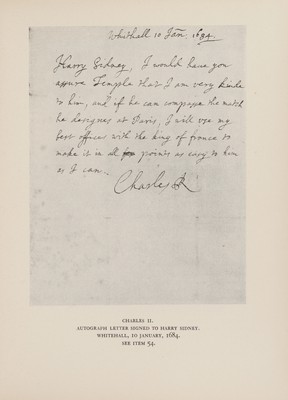 Whithall 10 Jan. 1684.
Harry Sidney, I would have you
assure Temple that I am very kinde
to him, and if he can compasse the match
he designes at Paris, I will use my
best offices with the king of france to
make it in all points as easy to him
as I can.
Charles R
CHARLES II.
AUTOGRAPH LETTER SIGNED TO HARRY SIDNEY.
WHITEHALL, 10 JANUARY, 1684.
SEE ITEM 54.